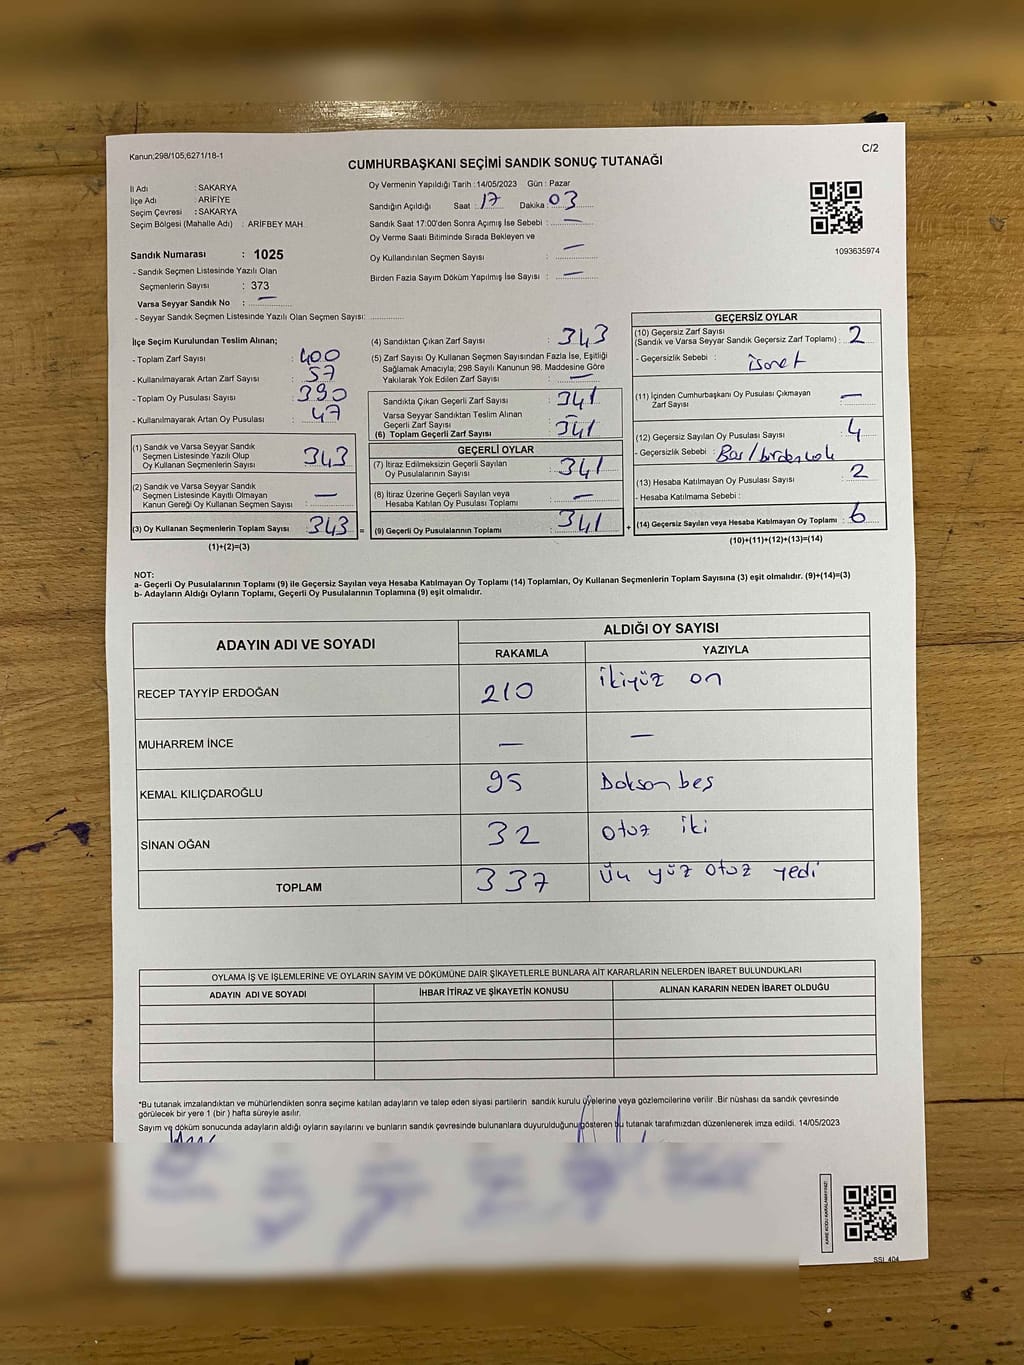 Kanun;298/105;6271/18-1
C/2
CUMHURBAŞKANI SEÇİMİ SANDIK SONUÇ TUTANAĞI
İl Adı : SAKARYA
İlçe Adı : ARİFİYE
Seçim Çevresi : SAKARYA
Seçim Bölgesi (Mahalle Adı) : ARİFBEY MAH.
Sandık Numarası : 1025
- Sandık Seçmen Listesinde Yazılı Olan
Seçmenlerin Sayısı : 373
Varsa Seyyar Sandık No : —
- Seyyar Sandık Seçmen Listesinde Yazılı Olan Seçmen Sayısı:
Oy Vermenin Yapıldığı Tarih : 14/05/2023 Gün : Pazar
Sandığın Açıldığı Saat : 17 Dakika : 03
Sandık Saat 17:00'den Sonra Açımış İse Sebebi : —
Oy Verme Saati Bitiminde Sırada Bekleyen ve
Oy Kullandırılan Seçmen Sayısı : —
Birden Fazla Sayım Döküm Yapılmış İse Sayısı : —
1093635974
İlçe Seçim Kurulundan Teslim Alınan;
- Toplam Zarf Sayısı : 400
- Kullanılmayarak Artan Zarf Sayısı : 57
- Toplam Oy Pusulası Sayısı : 390
- Kullanılmayarak Artan Oy Pusulası : 47
(1) Sandık ve Varsa Seyyar Sandık
Seçmen Listesinde Yazılı Olup
Oy Kullanan Seçmenlerin Sayısı : 343
(2) Sandık ve Varsa Seyyar Sandık
Seçmen Listesinde Kayıtlı Olmayan
Kanun Gereği Oy Kullanan Seçmen Sayısı : —
(3) Oy Kullanan Seçmenlerin Toplam Sayısı : 343
(1)+(2)=(3)
=
(4) Sandıktan Çıkan Zarf Sayısı : 343
(5) Zarf Sayısı Oy Kullanan Seçmen Sayısından Fazla İse, Eşitliği
Sağlamak Amacıyla; 298 Sayılı Kanunun 98. Maddesine Göre
Yakılarak Yok Edilen Zarf Sayısı : —
Sandıkta Çıkan Geçerli Zarf Sayısı : 341
Varsa Seyyar Sandıktan Teslim Alınan
Geçerli Zarf Sayısı : —
(6) Toplam Geçerli Zarf Sayısı : 341
GEÇERLİ OYLAR
(7) İtiraz Edilmeksizin Geçerli Sayılan
Oy Pusulalarının Sayısı : 341
(8) İtiraz Üzerine Geçerli Sayılan veya
Hesaba Katılan Oy Pusulası Toplamı : —
(9) Geçerli Oy Pusulalarının Toplamı : 341
+
GEÇERSİZ OYLAR
(10) Geçersiz Zarf Sayısı
(Sandık ve Varsa Seyyar Sandık Geçersiz Zarf Toplamı) : 2
- Geçersizlik Sebebi : isaret
(11) İçinden Cumhurbaşkanı Oy Pusulası Çıkmayan
Zarf Sayısı : —
(12) Geçersiz Sayılan Oy Pusulası Sayısı : 4
- Geçersizlik Sebebi : Bos/birden cok
(13) Hesaba Katılmayan Oy Pusulası Sayısı : 2
- Hesaba Katılmama Sebebi :
(14) Geçersiz Sayılan veya Hesaba Katılmayan Oy Toplamı : 6
(10)+(11)+(12)+(13)=(14)
NOT:
a- Geçerli Oy Pusulalarının Toplamı (9) ile Geçersiz Sayılan veya Hesaba Katılmayan Oy Toplamı (14) Toplamları, Oy Kullanan Seçmenlerin Toplam Sayısına (3) eşit olmalıdır. (9)+(14)=(3)
b- Adayların Aldığı Oyların Toplamı, Geçerli Oy Pusulalarının Toplamına (9) eşit olmalıdır.
ADAYIN ADI VE SOYADI
ALDIĞI OY SAYISI
RAKAMLA YAZIYLA
RECEP TAYYİP ERDOĞAN 210 ikiyüz on
MUHARREM İNCE — —
KEMAL KILIÇDAROĞLU 95 Doksan beş
SİNAN OĞAN 32 otuz iki
TOPLAM 337 Üç yüz otuz yedi
OYLAMA İŞ VE İŞLEMLERİNE VE OYLARIN SAYIM VE DÖKÜMÜNE DAİR ŞİKAYETLERLE BUNLARA AİT KARARLARIN NELERDEN İBARET BULUNDUKLARI
ADAYIN ADI VE SOYADI İHBAR İTİRAZ VE ŞİKAYETİN KONUSU ALINAN KARARIN NEDEN İBARET OLDUĞU
*Bu tutanak imzalandıktan ve mühürlendikten sonra seçime katılan adayların ve talep eden siyasi partilerin sandık kurulu üyelerine veya gözlemcilerine verilir .Bir nüshası da sandık çevresinde
görülecek bir yere 1 (bir ) hafta süreyle asılır.
Sayım ve döküm sonucunda adayların aldığı oyların sayılarını ve bunların sandık çevresinde bulunanlara duyurulduğunu gösteren bu tutanak tarafımızdan düzenlenerek imza edildi. 14/05/2023
SSİ_404